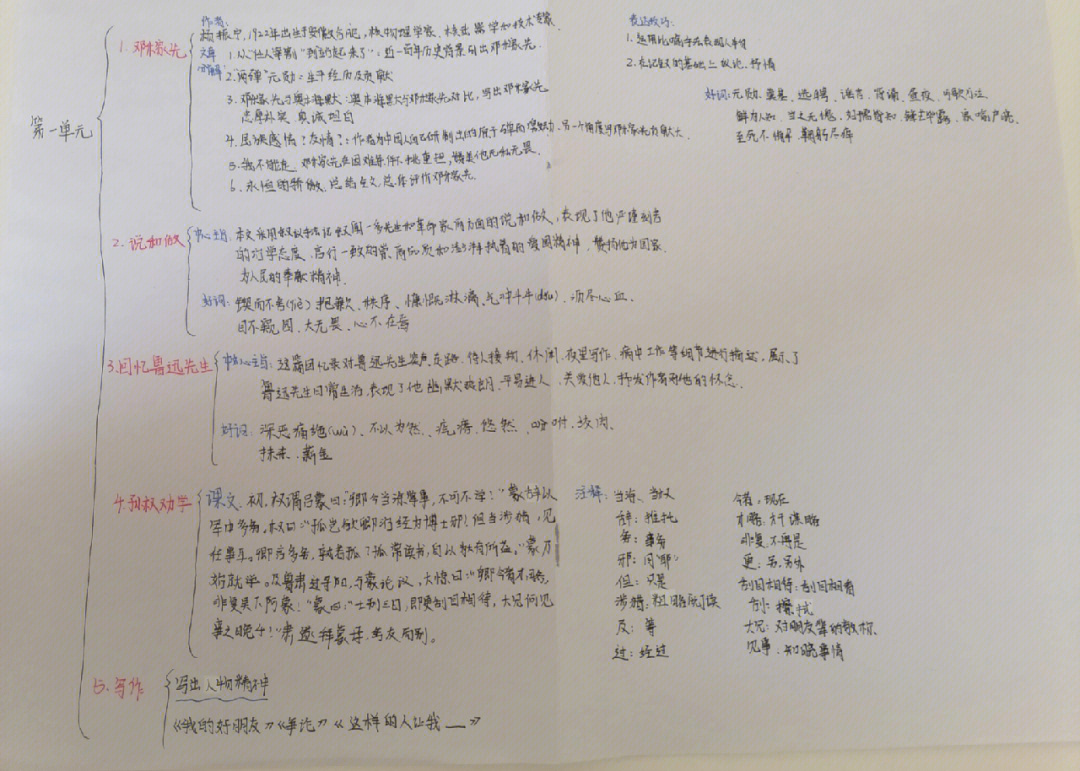 第一单元
1. 邓稼先
作者：
杨振宁，1922年出生于安徽合肥，核物理学家
文章
1.以"任人宰割""到站起来了"：近一百年历史背景引出邓稼先.
理解
2."两弹"元勋：生平经历及贡献
3.邓稼先与奥本海默：奥本海默与邓稼先对比，写出邓稼先
忠厚朴实 真诚坦白
4.民族感情？友情？：作者为中国人自己研制出的原子弹而
5.我不能走 邓稼先在困难条件下挑重担，
6.永恒的骄傲.总结全文总体评价邓稼先.
表达技巧：
2.在记叙的基础上议论、抒情
好词：元勋、奠基、选聘、谣言、背诵、
鲜为人知、当之无愧、锋芒毕露、家喻户晓、
至死不懈 鞠躬尽瘁
2.说和做
中心主旨：本文采用叙议手法记叙闻一多先生和革命家两方面的说和做，表现了他严谨刻苦
的治学态度、言行一致的
为人民的奉献精神.
好词：锲而不舍 抱歉、秩序、慷慨淋漓、气冲斗牛(dǒu)、沥尽心血、
目不窥园、大无畏、心不在焉
3.回忆鲁迅先生
中心主旨：这篇回忆录对鲁迅先生笑声、走路、待人接物、休闲、夜里写作、病中工作等细节进行描述，展示了
鲁迅先生日常生活，表现了他幽默 平易近人、关爱他人，抒发作者对他的怀念.
好词：深恶痛绝(wù)、不以为然、疙瘩、悠然、吩咐、校阅、
抹杀、薪金
4.孙权劝学
课文：初，权谓吕蒙曰："卿今当涂掌事，不可不学！"蒙辞以
军中多务.权曰："孤岂欲卿治经为博士邪！但当涉猎，见
往事耳.卿言多务，孰若孤？孤常读书，自以为有所益."蒙乃
始就学.及鲁肃过寻阳，与蒙论议，大惊曰："卿今者才略，
非复吴下阿蒙！"蒙曰："士别三日，即更刮目相待，大兄何见
事之晚乎！"肃遂拜蒙母，结友而别。
注释：当涂：当权
辞：推托
务：事务
邪：同"耶"
但：只是
涉猎：粗略阅读
及：等
过：经过
今者：现在
才略：才干谋略
非复：不再是
更：另，另外
刮目相待：刮目相看
刮：擦拭
大兄：对朋友辈的敬称.
见事：知晓事情
5.写作
写出人物精神
《我的好朋友》《争论》《这样的人让我＿》